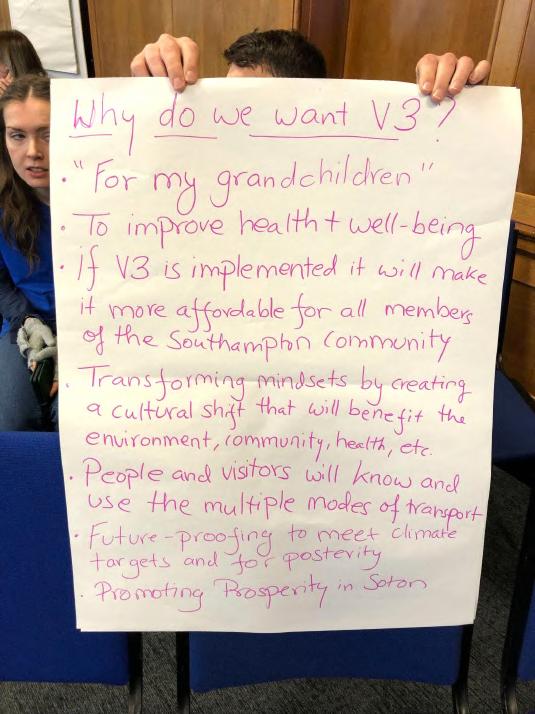 Why do we want V3?
• "For my grandchildren"
• To improve health + well-being
• If V3 is implemented it will make
it more affordable for all members
of the Southampton Community
• Transforming mindsets by creating
a cultural shift that will benefit the
environment, community, health, etc.
• People and visitors will know and
use the multiple modes of transport
• Future-proofing to meet climate
targets and for posterity
• Promoting Prosperity in Soton